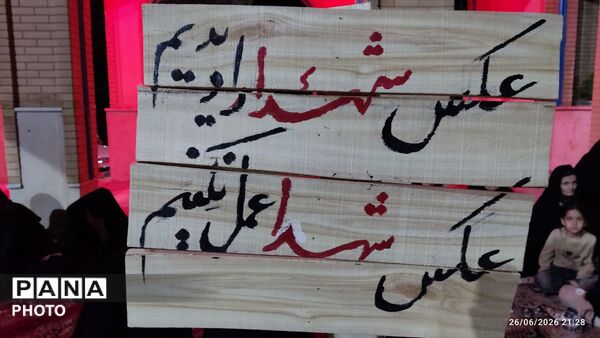 عکس شهدا را دیدیم
عکس شهدا عمل نکنیم
PANA
PHOTO
26/06/2026 21:28